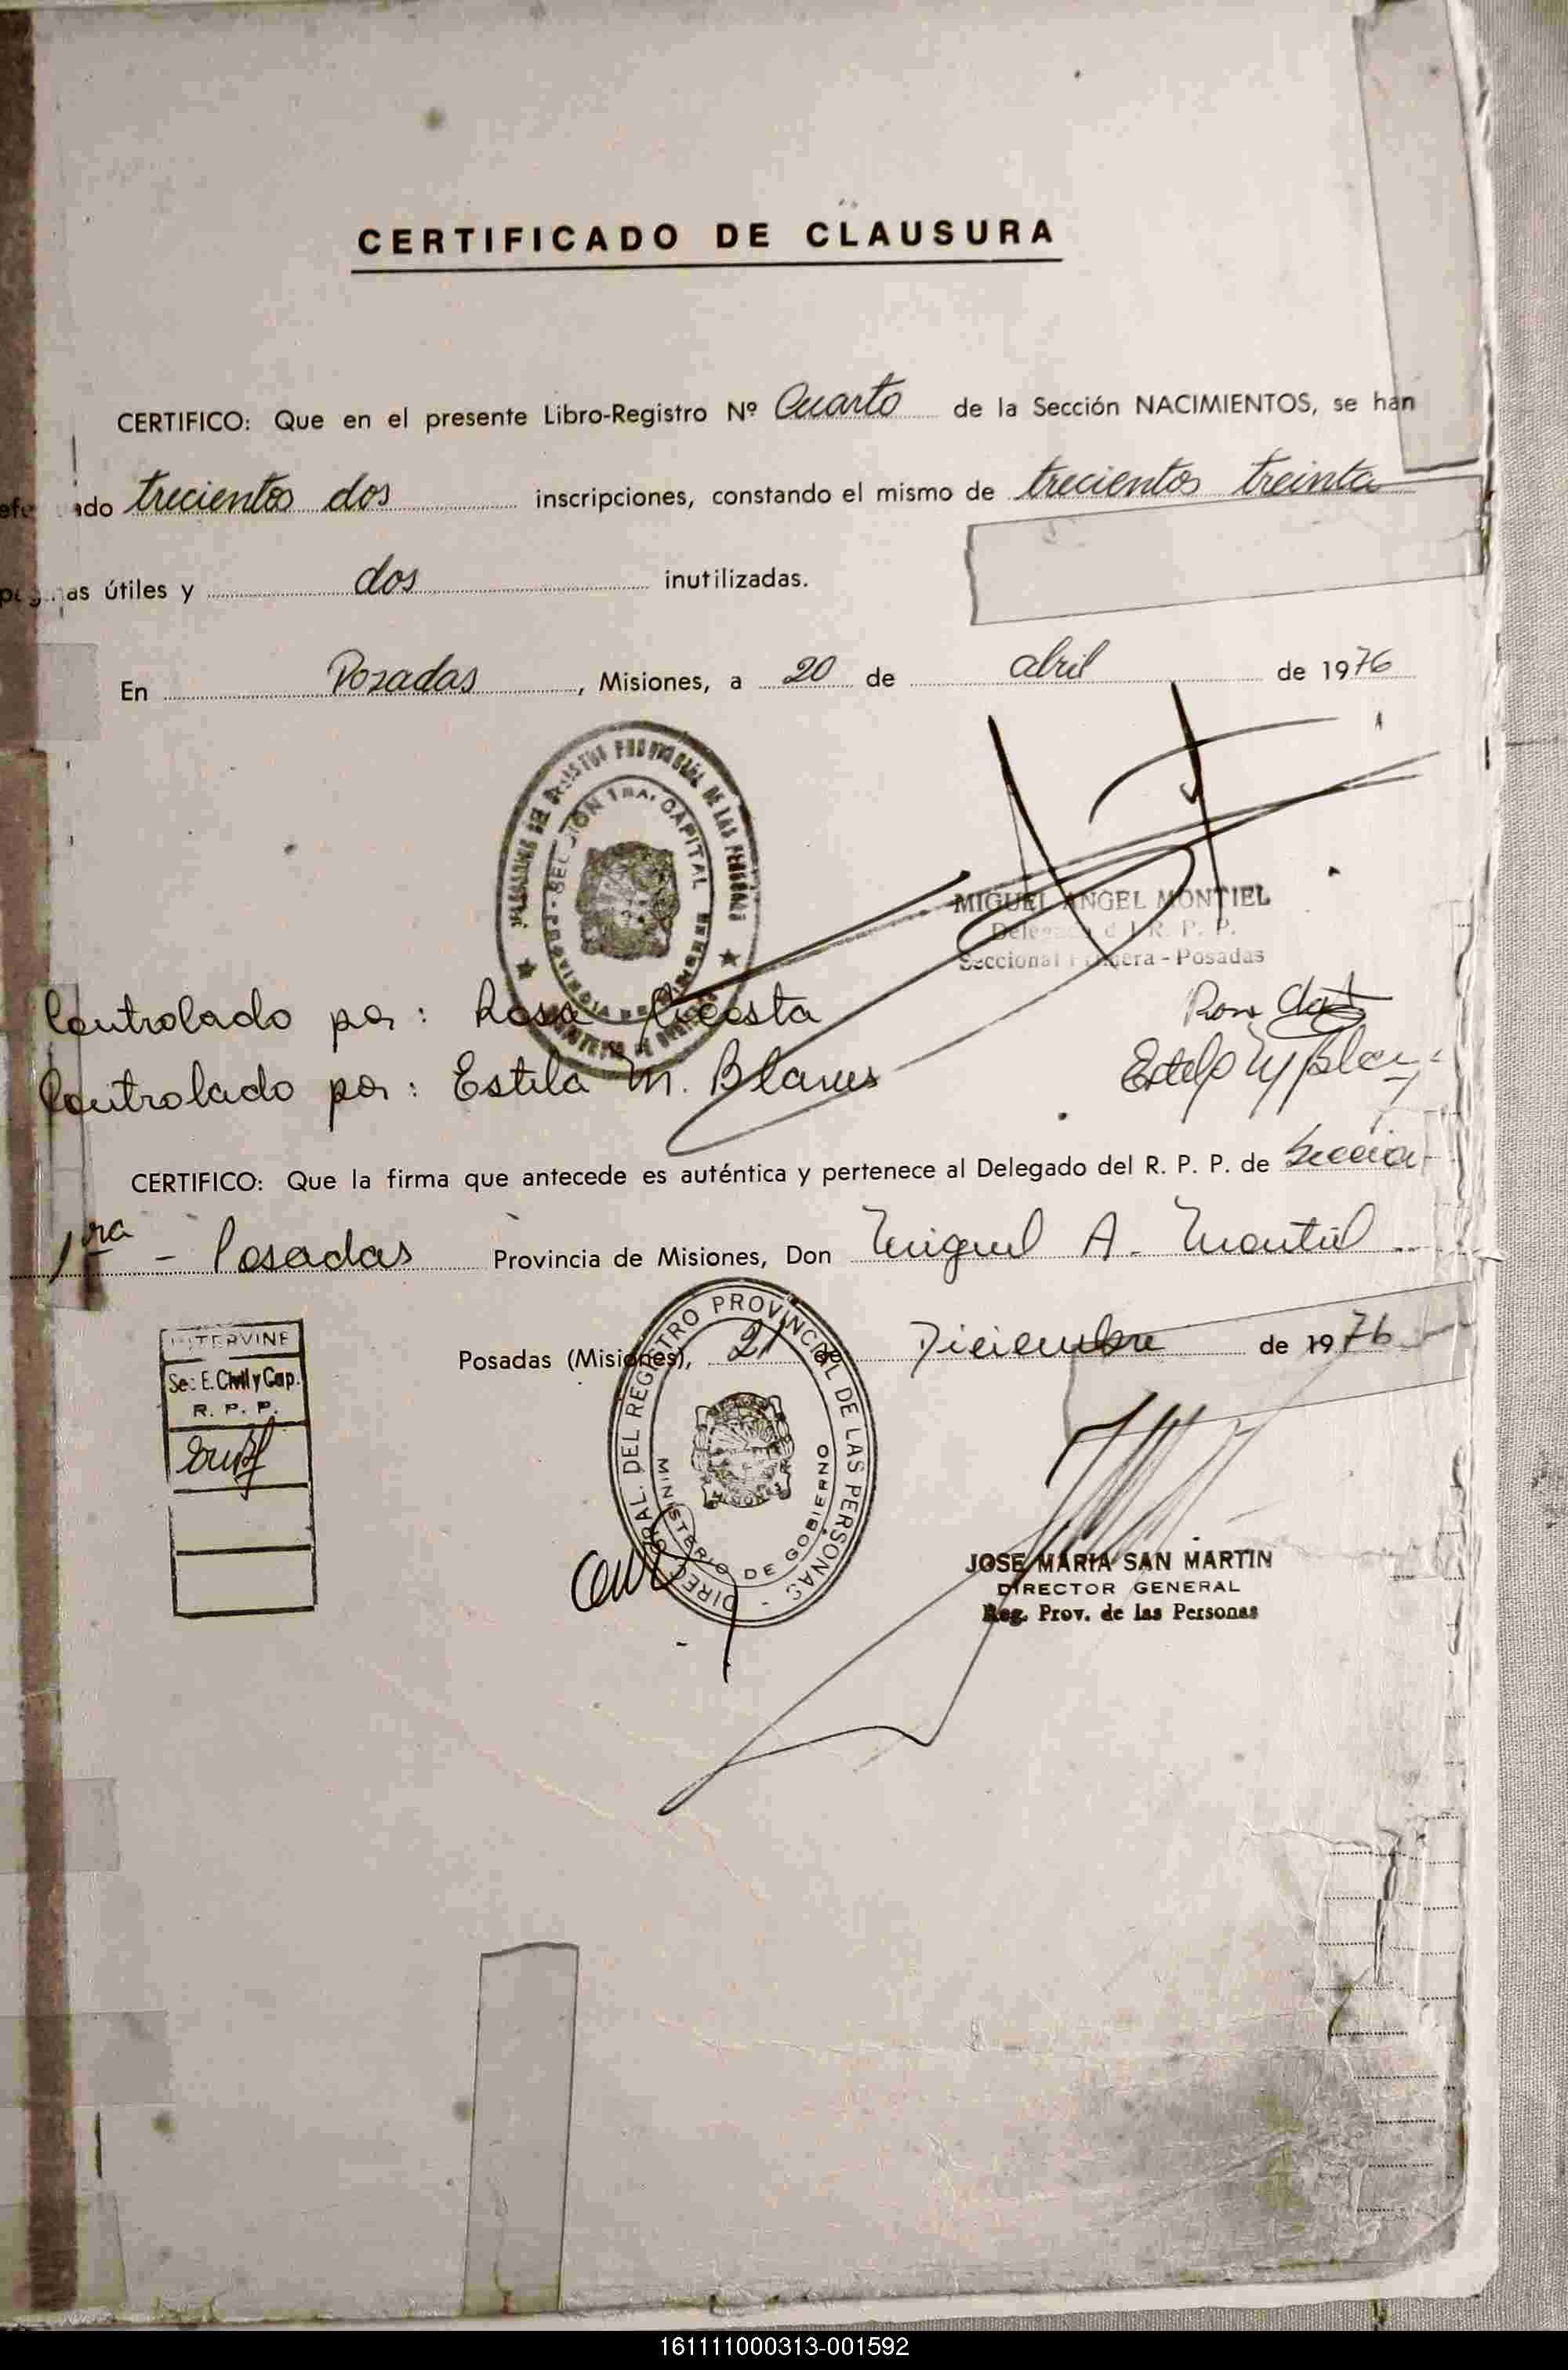 CERTIFICADO DE CLAUSURA
CERTIFICO: Que en el presente Libro-Registro Nº Cuarto de la Sección NACIMIENTOS, se han
ado trecientos dos inscripciones, constando el mismo de trecientos treinta
as útiles y dos inutilizadas.
En Posadas, Misiones, a 20 de abril de 1976
REGISTRO PROVINCIAL DE LAS PERSONAS
SECCION 1RA. CAPITAL
PROVINCIA DE
MIGUEL ANGEL MONTIEL
Delegado d l R. P. P.
Seccional Primera - Posadas
Controlado por: Rosa Acosta
Controlado por: Estela M. Blanus
CERTIFICO: Que la firma que antecede es auténtica y pertenece al Delegado del R. P. P. de Seccion
1ra - Posadas Provincia de Misiones, Don Miguel A. Montiel
Posadas (Misiones), 21 de Diciembre de 1976
INTERVINE
Sec. E. Civil y Cap.
R. P. P.
DIREC. GRAL. DEL REGISTRO PROVINCIAL DE LAS PERSONAS -
MINISTERIO DE GOBIERNO
MISIONES
JOSE MARIA SAN MARTIN
DIRECTOR GENERAL
Reg. Prov. de las Personas
161111000313-001592